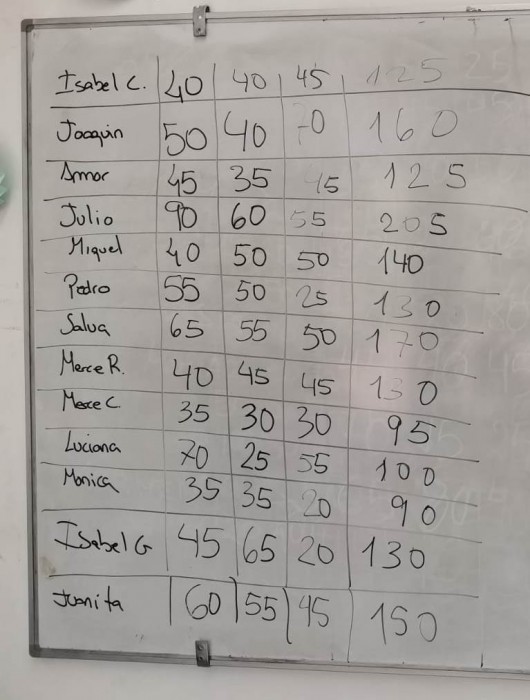 Isabel C. 40 40 45 125
Joaquin 50 40 70 160
Amor 45 35 45 125
Julio 90 60 55 205
Miquel 40 50 50 140
Pedro 55 50 25 130
Salva 65 55 50 170
Merce R. 40 45 45 130
Merce C. 35 30 30 95
Luciana 70 25 55 100
Monica 35 35 20 90
Isabel G 45 65 20 130
Juanita 60 55 45 150